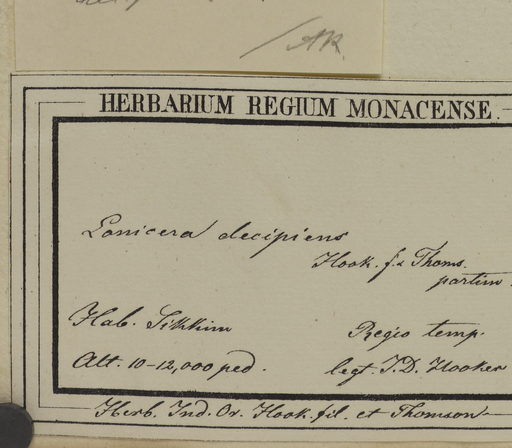 HERBARIUM REGIUM MONACENSE.
Lonicera decipiens
Hook. f. & Thoms.
partim.
Hab. Sikkim
Regio temp.
Alt. 10-12,000 ped.
legt. J.D. Hooker
Herb. Ind. Or. Hook. fil. et Thomson